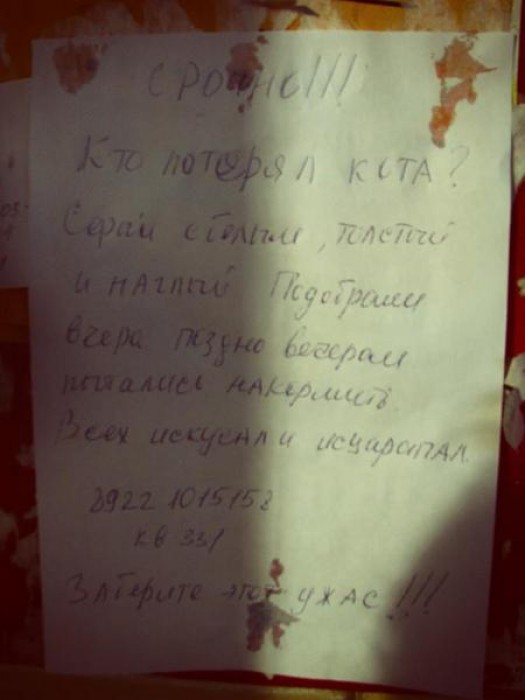 СРОЧНО!!!
Кто потерял кота?
Серый с белым, толстый
и наглый Подобрали
вчера поздно вечером
пытались накормить.
Всех искусал и исцарапал.
8922 1015158
кв 331
Заберите этот ужас!!!